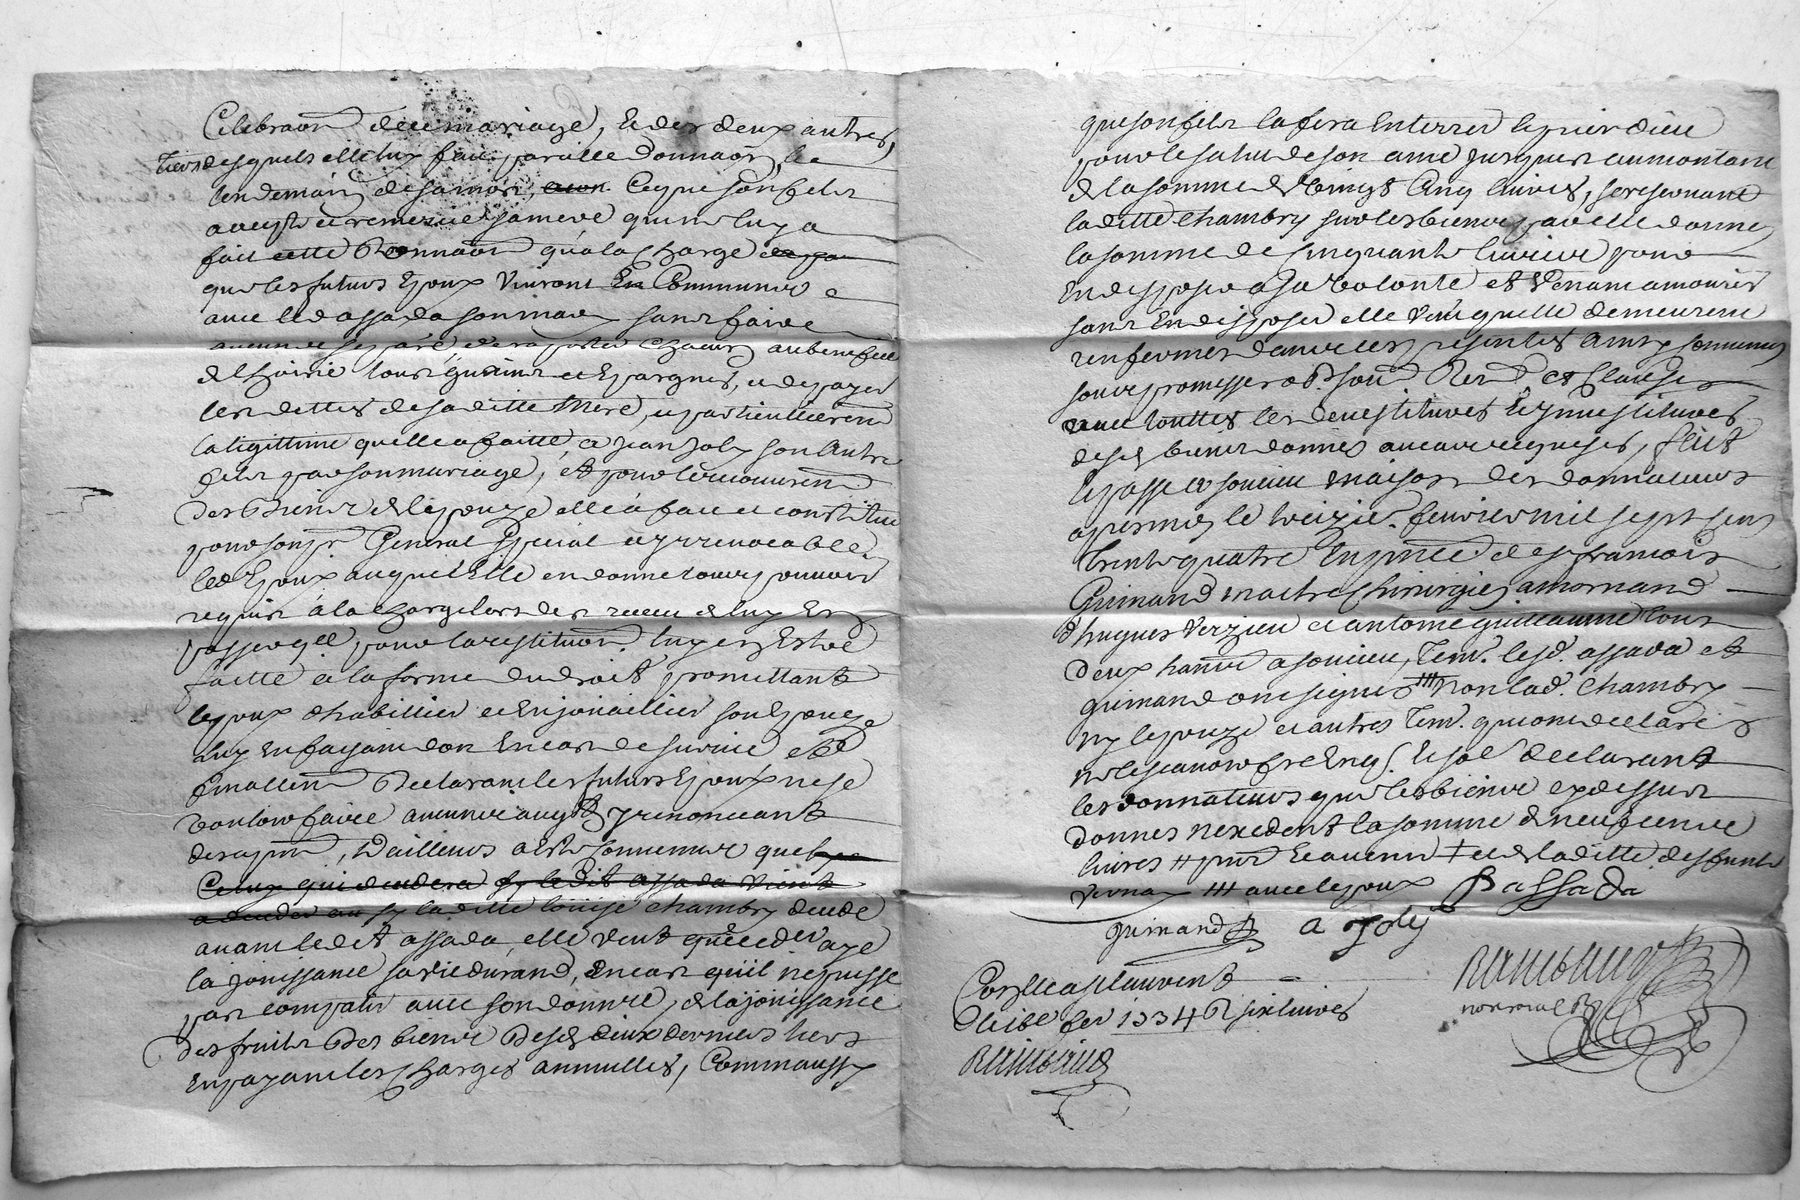 Celebraon de ce mariage, Et des deux autres
tiers desquels elle luy fait pareille donnaon le
lendemain de sa mort, Ce que son fils
accepte et remercie sa mere qui ne luy a
fait cette donnaon qu'a la charge
que les futurs Epoux vivront En Commun
avec led assada son mary sans faire
au benefice
de lhoirie tous guains et Epargnes, et de payer
les dettes de saditte Mere, et particulierem
la legittime quelle a faitte a jean Joly son autre
fils par son mariage, et pour le recouvrem
des biens de lepouze elle a fait et constitue
pour son pr. General special et irrevocable
led Epoux auquel Elle en donne tous pouvoir
requis à la charge lors des receu de luy En
passer qce pour la restituon luy en Estre
faitte a la forme du droit, promettant
lepoux dhabillier et Enjoüaillier son Epouze
luy en faisant don En cas de survie et
finallem Declarant les futurs Epoux ne se
vouloir faire aucune augt y renonceant
, D'ailleurs a este convenu que
Celuy qui decedera sy ledit assada vient
a deceder au sy la ditte loüise chambry decede
avant ledit assada, elle veut qu'icelluy aye
la joüissance sa vie durand, En cas qu'il ne puisse
pas compatir avec son donnre, de la joüissance
des fruits des biens desd deux derniers tiers
En payant les charges annuelles, Comm'aussy
que son fils la fera Enterrer le prier dieu
pour le salut de son ame jusques au montant
de la somme de vingt Cinq livres, se reservant
laditte chambry sur les biens par elle donnes
la somme de cinquante livres pour
En disposer a sa volonté et venant a mourir
sans En disposer elle veut quelle demeurent
renfermes dans les presentes ainsy convenu
sous promesses obson Ren. et Clauses
avec touttes les devestitures Et investitures
desd biens donnés au cas requises, fait
et passé a soucieu maison des donnateurs
apres midy le treizie. fevrier mil sept cens
trente quatre En pnce de sr francois
Guinand maitre chirurgien a mornand
d'hugues Verzieu et antoine guillaume tous
deux hants a soucieu, Tem. lesd. assada et
guinand ont signé non lad. chambry
ny lepouze et autres Tem. qui ont declaré
ne le scavoir fre Enq. Et sol declarant
les donnateurs que les biens cy dessus
donnes n'excedent la somme de neuf cents
livres # et de laditte deffunte
# avec lepoux B assada
guinand a Joly
Raimbaud
not royal
Conlle a st laurent
le 18e fer 1734 R six livres
Raimbaud